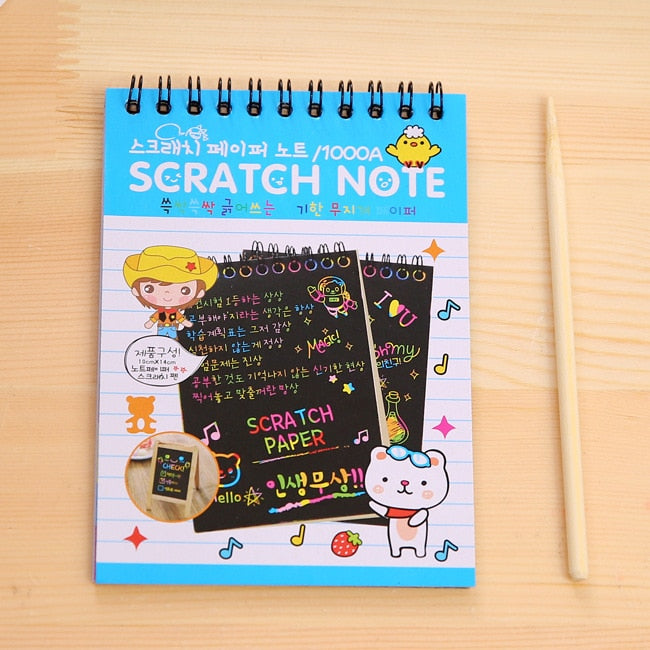 스크래치 페이퍼 노트 /1000A
SCRATCH NOTE
쓱싹쓱싹 긁어쓰는 기한 무지개 페이퍼
1등하는 상상
생각은 항상
학습계획표는 그저 감상
실천하지 않는게 정상
시험문제는 진상
공부한것도 기억나지 않는 신기한 현상
찍어놓고 맞출꺼란 망상
Magic!
I U
Oh my
제품구성!
10cmX14cm
스크래치 펜
SCRATCH
PAPER
CHECK!
Hello
인생무상!!